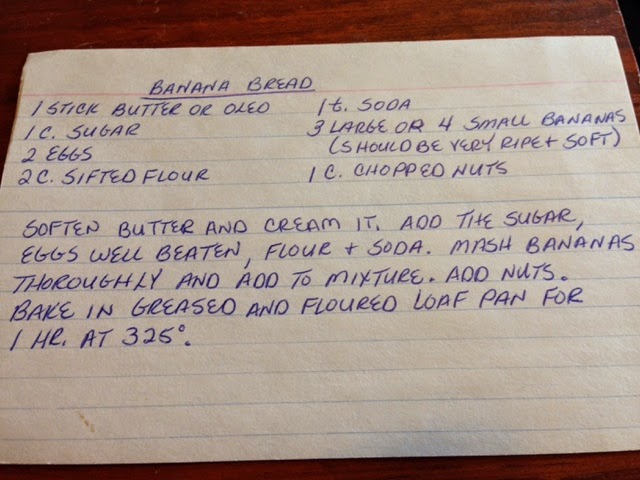 BANANA BREAD
1 STICK BUTTER OR OLEO
1 C. SUGAR
2 EGGS
2 C. SIFTED FLOUR
1 t. SODA
3 LARGE OR 4 SMALL BANANAS
(SHOULD BE VERY RIPE + SOFT)
1 C. CHOPPED NUTS
SOFTEN BUTTER AND CREAM IT. ADD THE SUGAR,
EGGS WELL BEATEN, FLOUR + SODA. MASH BANANAS
THOROUGHLY AND ADD TO MIXTURE. ADD NUTS.
BAKE IN GREASED AND FLOURED LOAF PAN FOR
1 HR. AT 325°.